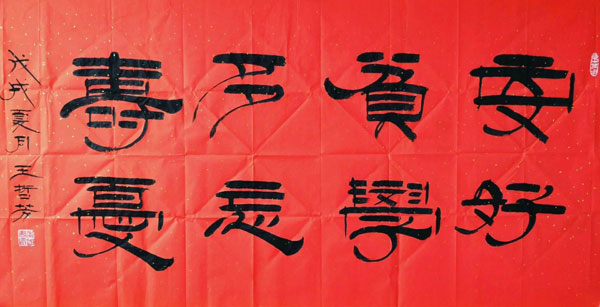 安貧多壽
好學忘憂
戊戌夏月王哲芳